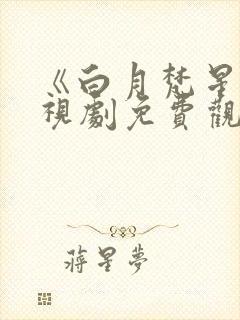 《白月梵星
視劇免費觀
蔣星夢